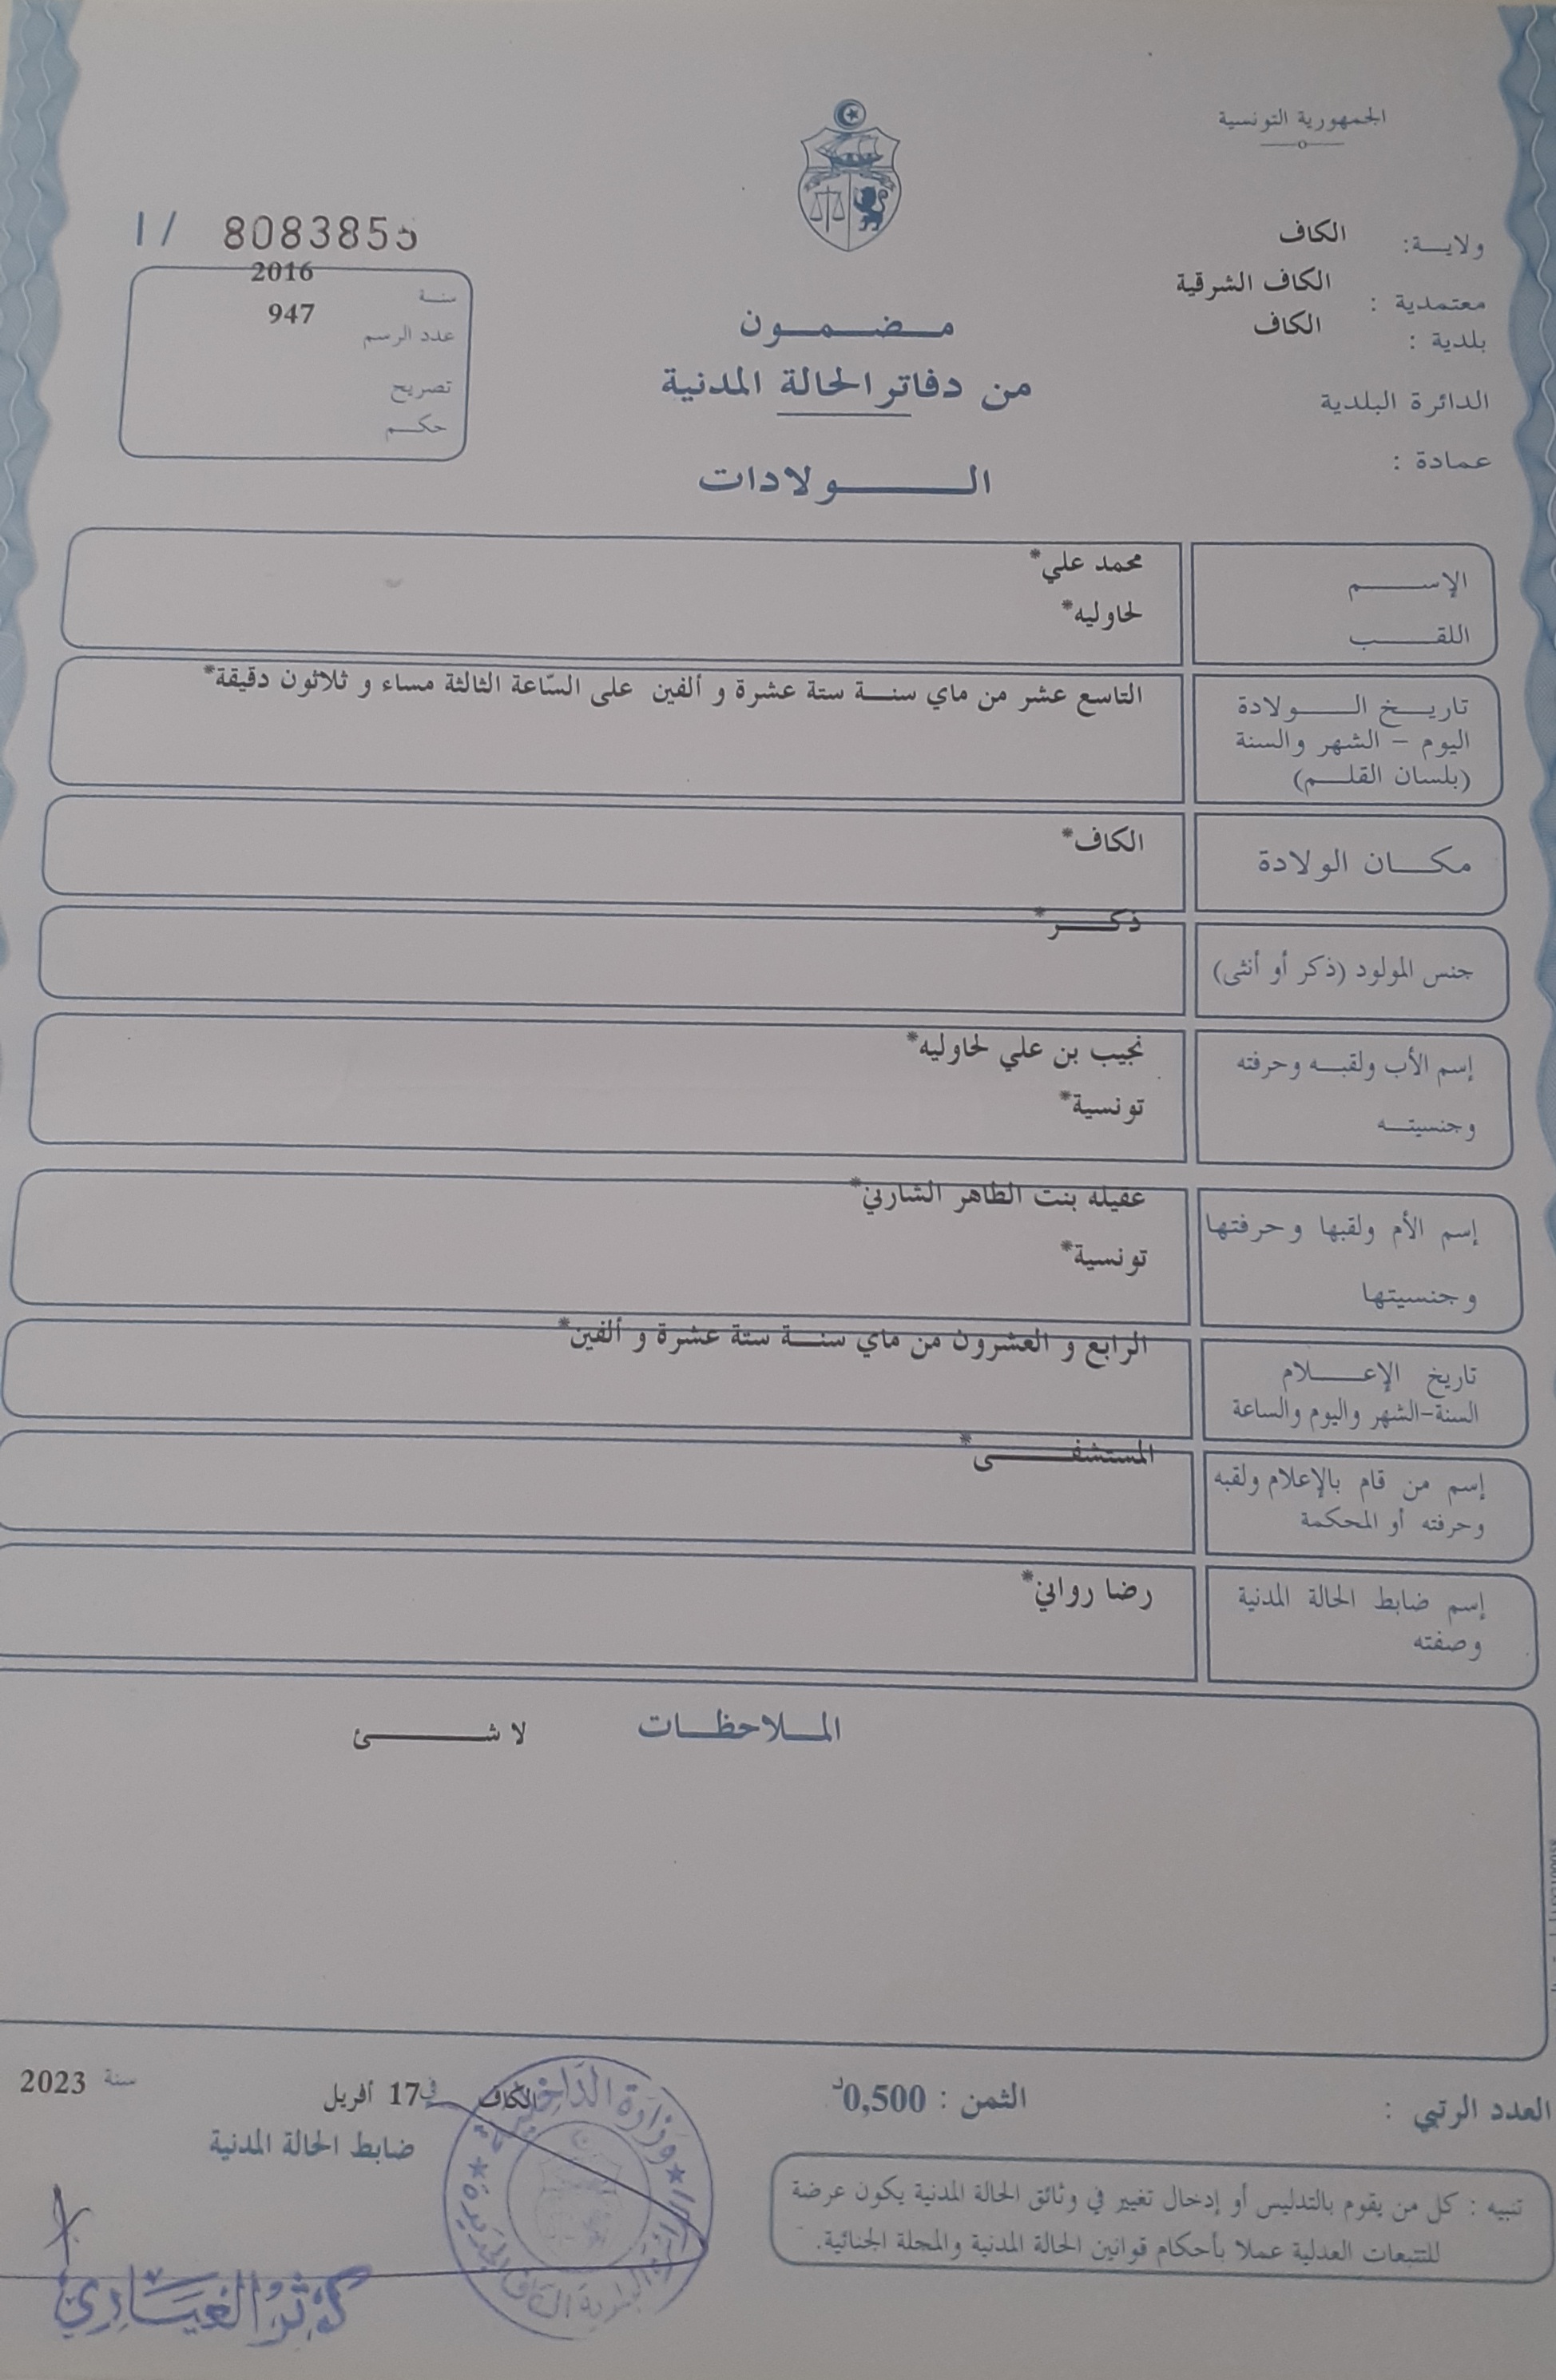 الجمهورية التونسية
ولاية: الكاف
معتمدية : الكاف الشرقية
بلدية : الكاف
الدائرة البلدية
عمادة :
I / 8083855
سنة 2016
عدد الرسم 947
تصريح
حكم
مضمون
من دفاتر الحالة المدنية
الولادات
الإسم محمد علي*
اللقب لحاوليه*
تاريخ الولادة
اليوم - الشهر والسنة
(بلسان القلم)
التاسع عشر من ماي سنة ستة عشرة و ألفين على السّاعة الثالثة مساء و ثلاثون دقيقة*
مكان الولادة الكاف*
جنس المولود (ذكر أو أنثى) ذكر*
إسم الأب ولقبه وحرفته نجيب بن علي لحاوليه*
وجنسيته تونسية*
إسم الأم ولقبها وحرفتها عقيله بنت الطاهر الشارني*
وجنسيتها تونسية*
تاريخ الإعلام
السنة-الشهر واليوم والساعة
الرابع و العشرون من ماي سنة ستة عشرة و ألفين*
إسم من قام بالإعلام ولقبه
وحرفته أو المحكمة
المستشفى*
إسم ضابط الحالة المدنية
وصفته
رضا رواني*
الملاحظات لا شئ
العدد الرتبي :
الثمن : 0,500د
الكاف في 17 أفريل سنة 2023
ضابط الحالة المدنية
تنبيه : كل من يقوم بالتدليس أو إدخال تغيير في وثائق الحالة المدنية يكون عرضة
للتتبعات العدلية عملا بأحكام قوانين الحالة المدنية والمجلة الجنائية.
وزارة الداخلية